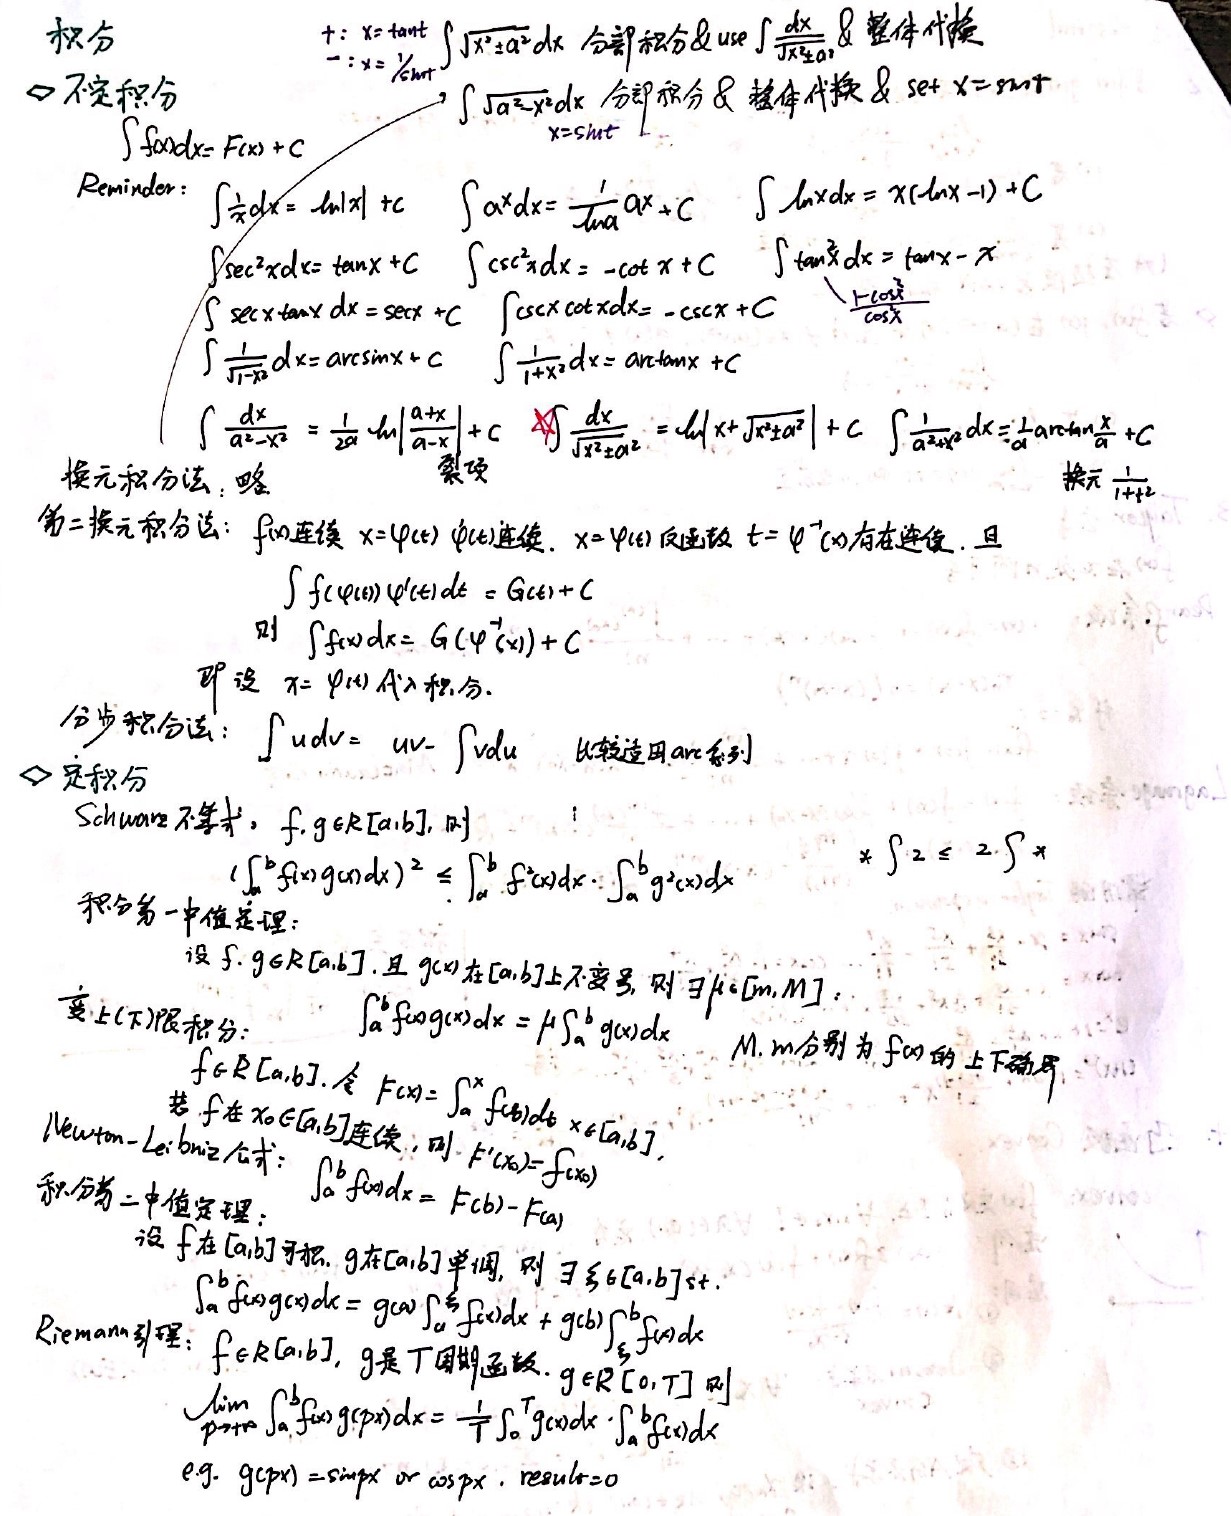 积分
+: x=tant
-: x=1/sint
∫√(x²±a²)dx 分部积分&use ∫dx/√(x²±a²) & 整体代换
◇不定积分
∫√(a²-x²)dx 分部积分 & 整体代换 & set x=sint
x=sint
∫f(x)dx=F(x)+C
Reminder: ∫1/x dx=ln|x|+C ∫aˣdx=1/lna aˣ+C ∫lnxdx=x(lnx-1)+C
∫sec²xdx=tanx+C ∫csc²xdx=-cotx+C ∫tan²xdx=tanx-x
(1-cos²x)/cos²x
∫secxtanxdx=secx+C ∫cscxcotxdx=-cscx+C
∫1/√(1-x²) dx=arcsinx+C ∫1/(1+x²) dx=arctanx+C
∫dx/(a²-x²)=1/2a ln|(a+x)/(a-x)|+C ☆∫dx/√(x²±a²)=ln|x+√(x²±a²)|+C ∫1/(a²+x²) dx=1/a arctan x/a+C
裂项
换元 1/(1+t²)
换元积分法: 略
第二换元积分法: f(x)连续 x=φ(t) φ(t)连续. x=φ(t)反函数 t=φ⁻¹(x)存在连续. 且
∫f(φ(t))φ'(t)dt=G(t)+C
则 ∫f(x)dx=G(φ⁻¹(x))+C
即设 x=φ(t)代入积分.
分步积分法: ∫udv=uv-∫vdu 比较适用arc系列
◇定积分
Schwarz不等式. f.g∈R[a,b], 则
(∫ₐᵇf(x)g(x)dx)²≤∫ₐᵇf²(x)dx·∫ₐᵇg²(x)dx *∫2≤2∫*
积分第一中值定理:
设f.g∈R[a,b].且g(x)在[a,b]上不变号,则∃μ∈[m,M]:
∫ₐᵇf(x)g(x)dx=μ∫ₐᵇg(x)dx M.m分别为f(x)的上下确界
变上(下)限积分:
f∈R[a,b].令 F(x)=∫ₐˣf(t)dt x∈[a,b],
若f在x₀∈[a,b]连续,则F'(x₀)=f(x₀)
Newton-Leibniz公式: ∫ₐᵇf(x)dx=F(b)-F(a)
积分第二中值定理:
设f在[a,b]可积,g在[a,b]单调,则∃ξ∈[a,b]st.
∫ₐᵇf(x)g(x)dx=g(a)∫ₐ^ξ f(x)dx+g(b)∫_ξ^b f(x)dx
Riemann引理: f∈R[a,b], g是T周期函数. g∈R[0,T]则
lim p→+∞ ∫ₐᵇf(x)g(px)dx=1/T∫₀ᵀg(x)dx·∫ₐᵇf(x)dx
e.g. g(px)=sinpx or cospx. result=0